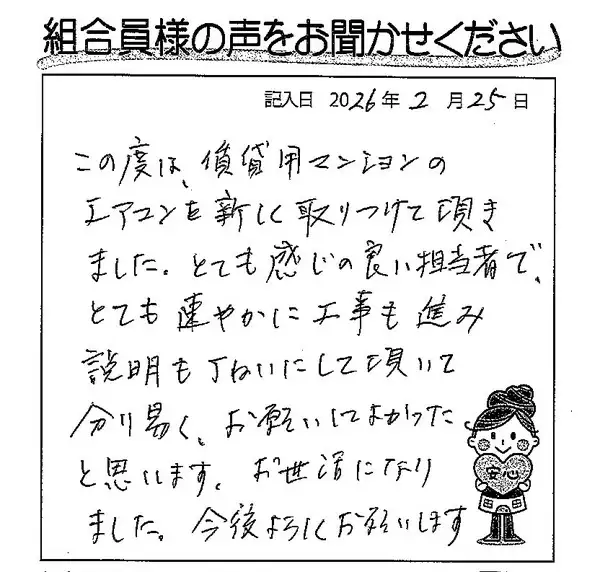 組合員様の声をお聞かせください
記入日 2026年 2月25日
この度は、賃貸用マンションの
エアコンを新しく取りつけて頂き
ました。とても感じの良い担当者で、
とても速やかに工事も進み
説明も丁ねいにして頂いて
分り易く、お願いしてよかった
と思います。お世話になり
ました。今後よろしくお願いします
安心